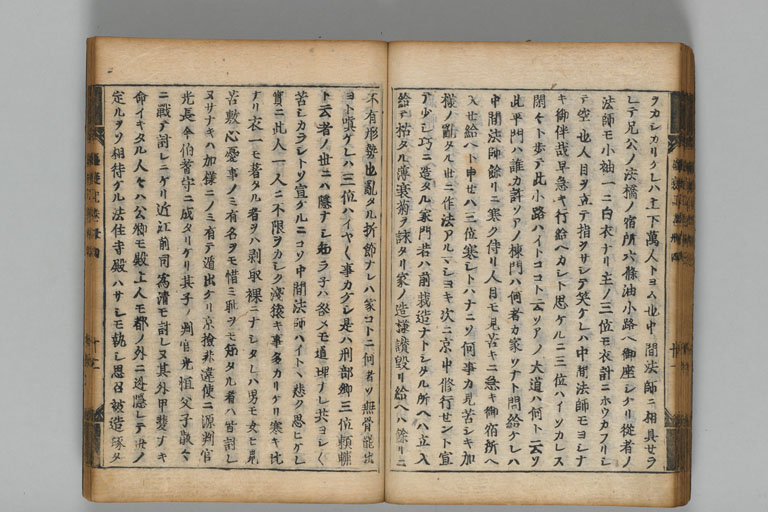 ヲカシカリケレハ上下萬人トヨム也中間法師ニ相具セラ
レテ兄公ノ法橋ノ宿所六條油小路ヘ御座シケリ從者ノ
法師モ小袖一ニ白衣ナリ主ノ三位モ衣計ニホウカフリシ
テ空也人目ヲ立テ指ヲサシテ笑ケレハ中間法師モヨシナ
キ御伴哉早急キ行給ヘカシト思ケルニ三位ハイソカレス
閑々ト歩テ此小路ハイトココト云ソアノ大道ハ何ト云ソ
此平門ハ誰カ許ソアノ棟門ハ何者カ家ソナト問給ケレハ
中間法師餘リニ寒ク侍リ人目モ見苦キニ急キ御宿所ヘ
入セ給ヘト申セハ三位寒シトハナニソ何事カ見苦シキ加
樣ノ亂タル世ニ作法アルヽシヨキ次ニ京中修行セント宣
テ少シ巧ニ造タル家門若ハ前栽造ナトシタル所ヘハ立入
給テ枯タル薄衰菊ヲ詠タリ家ノ造樣讃毀リ給ヘハ餘リニ
不有形勢也亂タル折節ナレハ家コトニ何者ソ無骨罷出
ヨト嗔ケレハ三位ハイヤ〱事カケシ是ハ刑部卿三位頼輔
ト云者ノ世ニハ隱ナシ ラ子ハ咎メモ道理ナレ共ヨシ〱
苦シカラシトソ宣ケルニコソ中間法師ハイトヽ悲ク思ヒケレ
實ニ此人一人ニ不限ヲカシク淺猿キ事多カリケリ寒キ比
ナリ衣一モ著タル者ヲハ剥取裸ニナシタレハ男モ女ヒ見
苦敷心憂事ノミ有名ヲモ惜ミ耻ヲモ知タル者ハ皆討レ
ヌサナキハ加樣ニノミ有テ遁出ケリ京撿非違使ニ源判官
光長今伯耆守ニ成タリケリ其子ノ判官光恒父子散々
ニ戰テ討レニケリ近江前司爲清モ討レヌ其外甲斐ナキ
命イキタル人々ハ公卿モ殿上人モ都ノ外ニ迯隱レテ世ノ
定ルヲソ相待ケル法住寺殿ハサシモ執シ思召被造琢タ